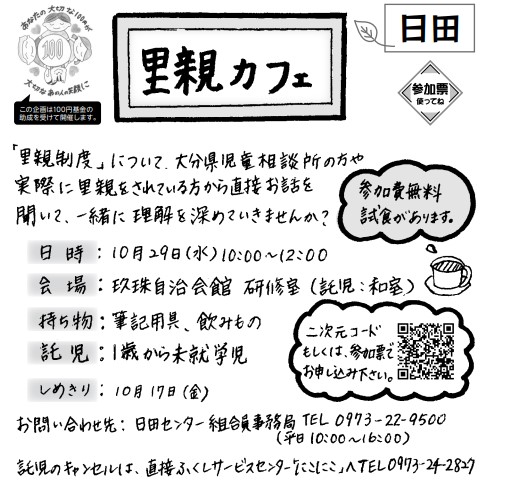 あなたの大切な100円が
100
大切なあの人の笑顔に
この企画は100円基金の
助成を受けて開催します。
里親カフェ
日田
参加票
使ってね
「里親制度」について、大分県児童相談所の方や
実際に里親をされている方から直接お話を
聞いて、一緒に理解を深めていきませんか?
参加費無料
試食があります。
日時:10月29日(水)10:00~12:00
会場:玖珠自治会館 研修室(託児:和室)
持ち物:筆記用具、飲みもの
託児:1歳から未就学児
しめきり:10月17日(金)
二次元コード
もしくは、参加票で
お申し込み下さい。
お問い合わせ先:日田センター組合員事務局 TEL 0973-22-9500
(平日10:00~16:00)
託児のキャンセルは、直接ふくしサービスセンター「にこにこ」へTEL0973-24-2827